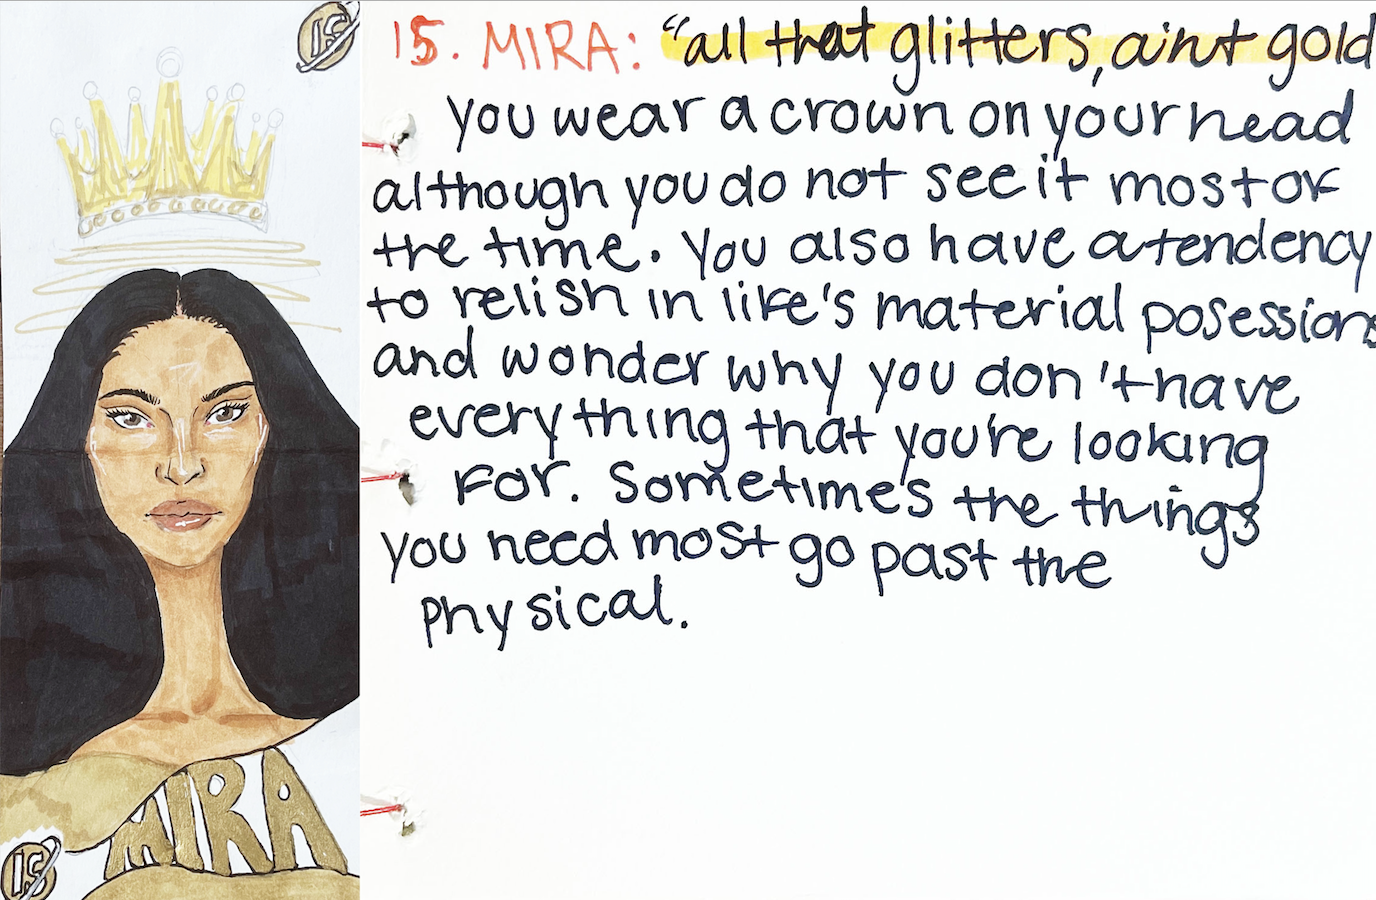 15
MIRA
15
15. MIRA: "all that glitters, ain't gold
you wear a crown on your head
although you do not see it most of
the time. You also have a tendency
to relish in life's material posessions
and wonder why you don't have
everything that you're looking
for. Sometime's the things
you need most go past the
physical.